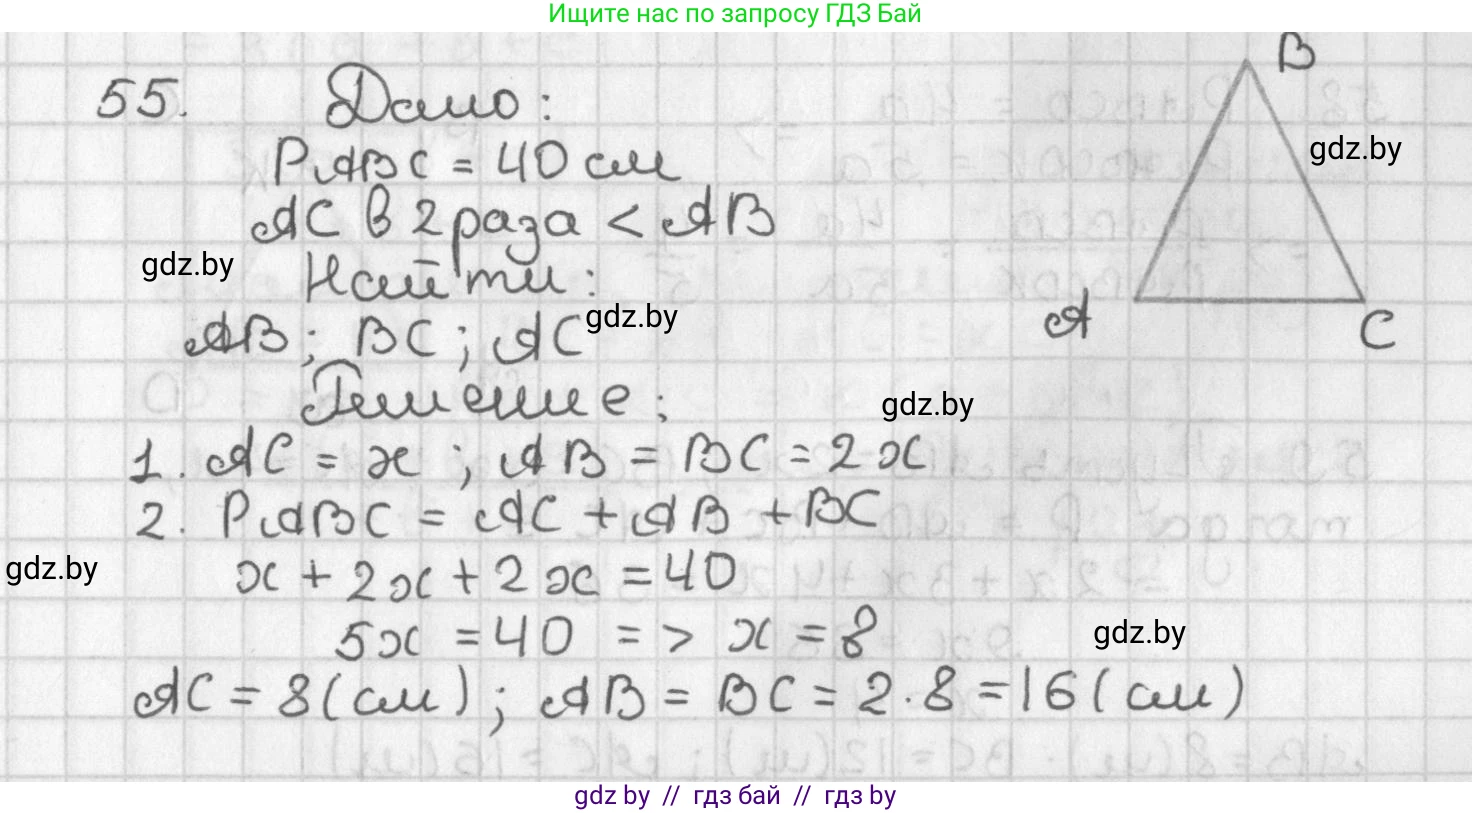 Ищите нас по запросу ГДЗ Бай
B
55. Дано:
gdz.by
PABC = 40 см
AC в 2 раза < AB
gdz.by
Найти:
gdz.by
AB; BC; AC
A
C
Решение:
gdz.by
1. AC = x ; AB = BC = 2x
2. PABC = AC + AB + BC
gdz.by
x + 2x + 2x = 40
5x = 40 => x = 8
gdz.by
AC = 8 (см); AB = BC = 2·8 = 16 (см)
gdz by // гдз бай // гдз by